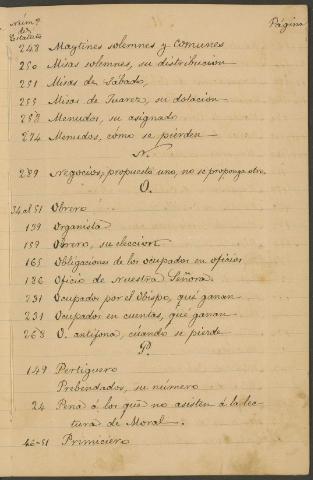 Núm.o
del
Estatuto
Página
248 Maytines solemnes y comunes
250 Misas solemnes, su distribucion
251 Misas de Sábado,
255 Misas de Juarez, su dotacion
258 Menudos, su asignado
274 Menudos, como se pierden
N.
289 Negocios, propuesto uno, no se proponga otro.
O.
34 al 51 Obrero
159 Organista
157 Obrero, su eleccion
165 Obligaciones de los ocupados en oficios
186 Oficio de Nuestra Señora.
231 Ocupados por el Obispo, qué ganan
231 Ocupados en cuentas, qué ganan
268 O. antífona, cuándo se pierde
P.
149 Pertiguero
Prebendados, su número
24 Pena á los que no asisten á la lec-
tura de Moral.
46-51 Primiciero